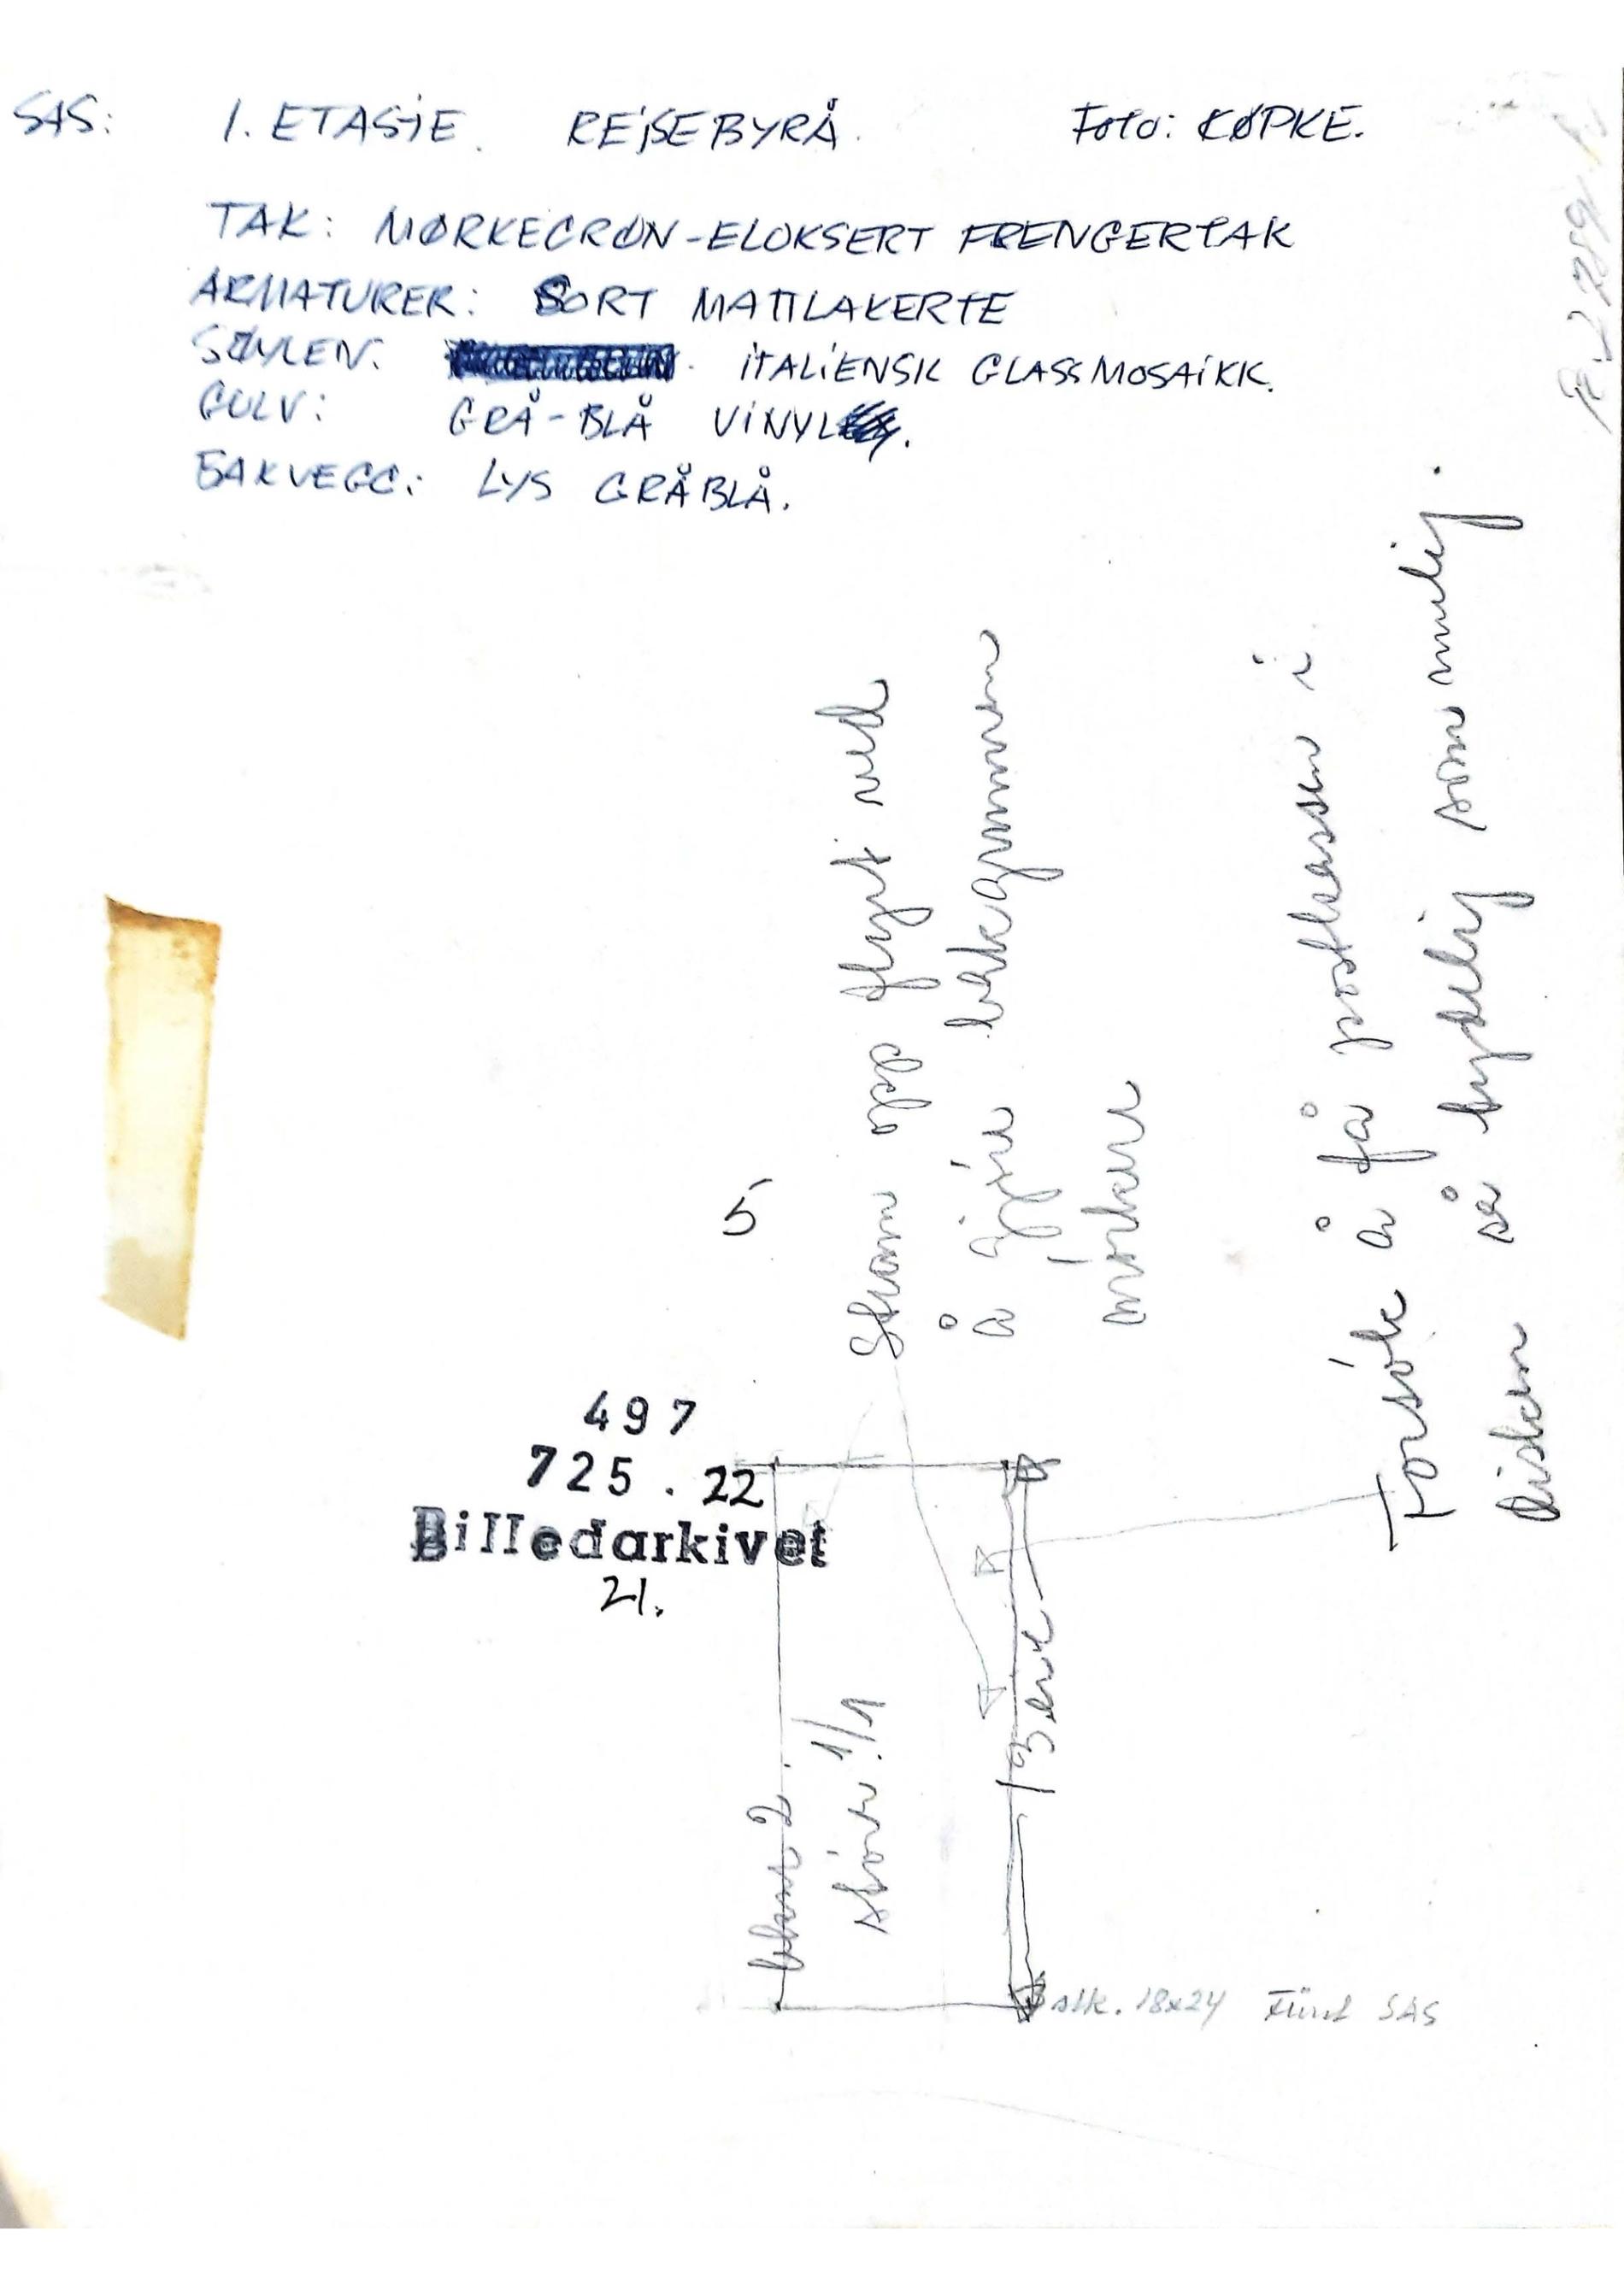 SAS: 1. ETASJE. REISEBYRÅ. Foto: KØPKE.
TAK: MØRKEGRØN-ELOKSERT FRENGERTAK
ARMATURER: SORT MATTLAKERTE
SØYLEN: ITALIENSK GLASSMOSAIKK.
GULV: GRÅ-BLÅ VINYL.
BAKVEGG: LYS GRÅBLÅ.
Stram opp flyet ved
å gjøre bakgrunnen
mörkere
Forsök å få postkassen i
disken så tydelig som mulig.
5
497
725.22
Billedarkivet
21.
stör. 1/1
13 cm
stk. 18x24 Fürst SAS